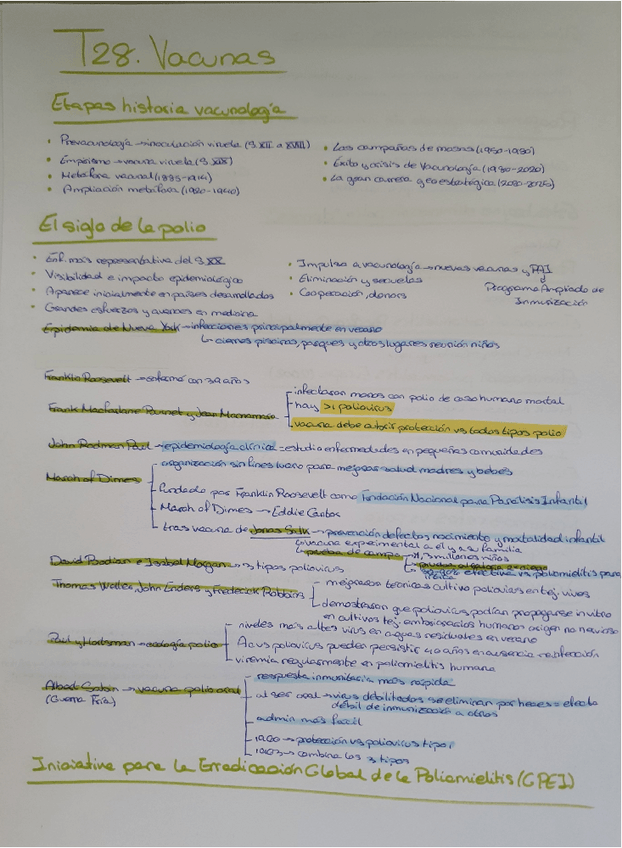 T28. Vacunas
Etapas historia vacunología
• Prevacunología → inoculación viruela (S. XII a XVIII)
• Empirismo → vacuna viruela (S. XIX)
• Metáfora vacunal (1885-1914)
• Ampliación metáfora (1920-1940)
• Las campañas de masas (1950-1980)
• Éxito y crisis de vacunología (1980-2020)
• La gran carrera geoestratégica (2020-2025)
El siglo de la polio
• Enf. más representativa del S. XX
• Visibilidad e impacto epidemiológico
• Aparece inicialmente en países desarrollados
• Grandes esfuerzos y avances en medicina
• Impulso a vacunología → nuevas vacunas y PAI
Programa Ampliado de
Inmunización
• Eliminación y secuelas
• Cooperación, donors
Epidemia de Nueva York → infecciones principalmente en verano
↳ cierres piscinas, parques y otros lugares reunión niños
Franklin Roosevelt → enfermó con 39 años
Frank Macfarlane Burnet y Jean Macnamara
infectaron monos con polio de caso humano mortal
hay >1 poliovirus
vacuna debe cubrir protección vs todos tipos polio
John Rodman Paul → epidemiología clínica = estudio enfermedades en pequeñas comunidades
March of Dimes
organización sin fines lucro para mejorar salud madres y bebés
fundado por Franklin Roosevelt como Fundación Nacional para Parálisis Infantil
March of Dimes → Eddie Cantor
tras vacuna de Jonas Salk → prevención defectos nacimiento y mortalidad infantil
↳ vacuna experimental a el y a su familia
↳ prueba de campo → 1,3 millones niños
efectiva vs poliomielitis para
David Bodian e Isabel Morgan → 3 tipos poliovirus
Thomas Weller, John Enders y Frederick Robbins
mejoraron técnicas cultivo poliovirus en tej. vivos
demostraron que poliovirus podían propagarse in vitro
en cultivos tej. embrionarios humanos origen no nervioso
Paul y Horstman → ecología polio
niveles más altos virus en aguas residuales en verano
Acus poliovirus pueden persistir 40 años en ausencia reinfección
viremia regularmente en poliomielitis humana
Albert Sabin → vacuna polio oral
(Guerra Fría)
respuesta inmunitaria más rápida
al ser oral → virus debilitados se eliminan por heces = efecto
débil de inmunización a otros
admin más fácil
1960 → protección vs poliovirus tipo 1
1963 → combina los 3 tipos
Iniciativa para la Erradicación Global de la Poliomielitis (GPEI)